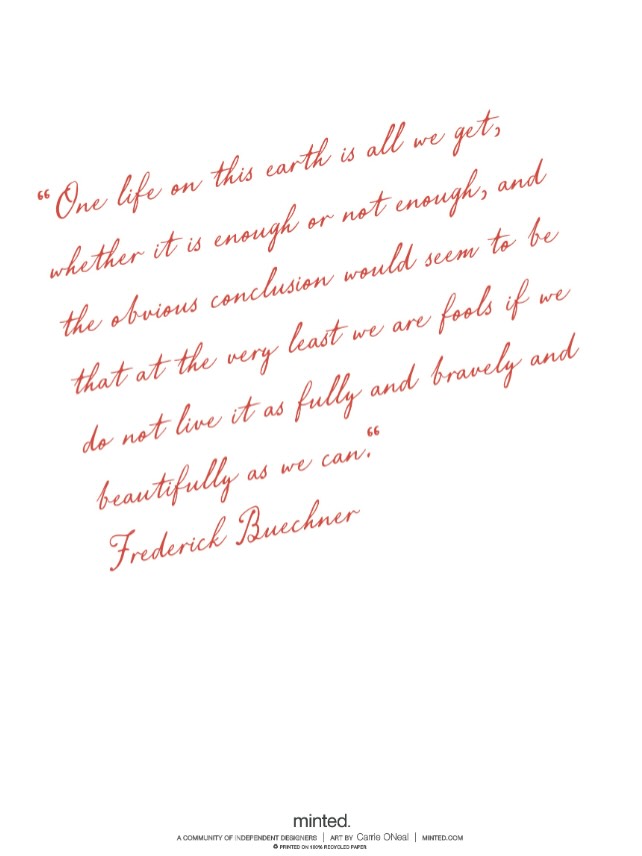 “One life on this earth is all we get,
whether it is enough or not enough, and
the obvious conclusion would seem to be
that at the very least we are fools if we
do not live it as fully and bravely and
beautifully as we can.“
Frederick Buechner
minted.
A COMMUNITY OF INDEPENDENT DESIGNERS | ART BY Carrie ONeal | MINTED.COM
♻ PRINTED ON 100% RECYCLED PAPER